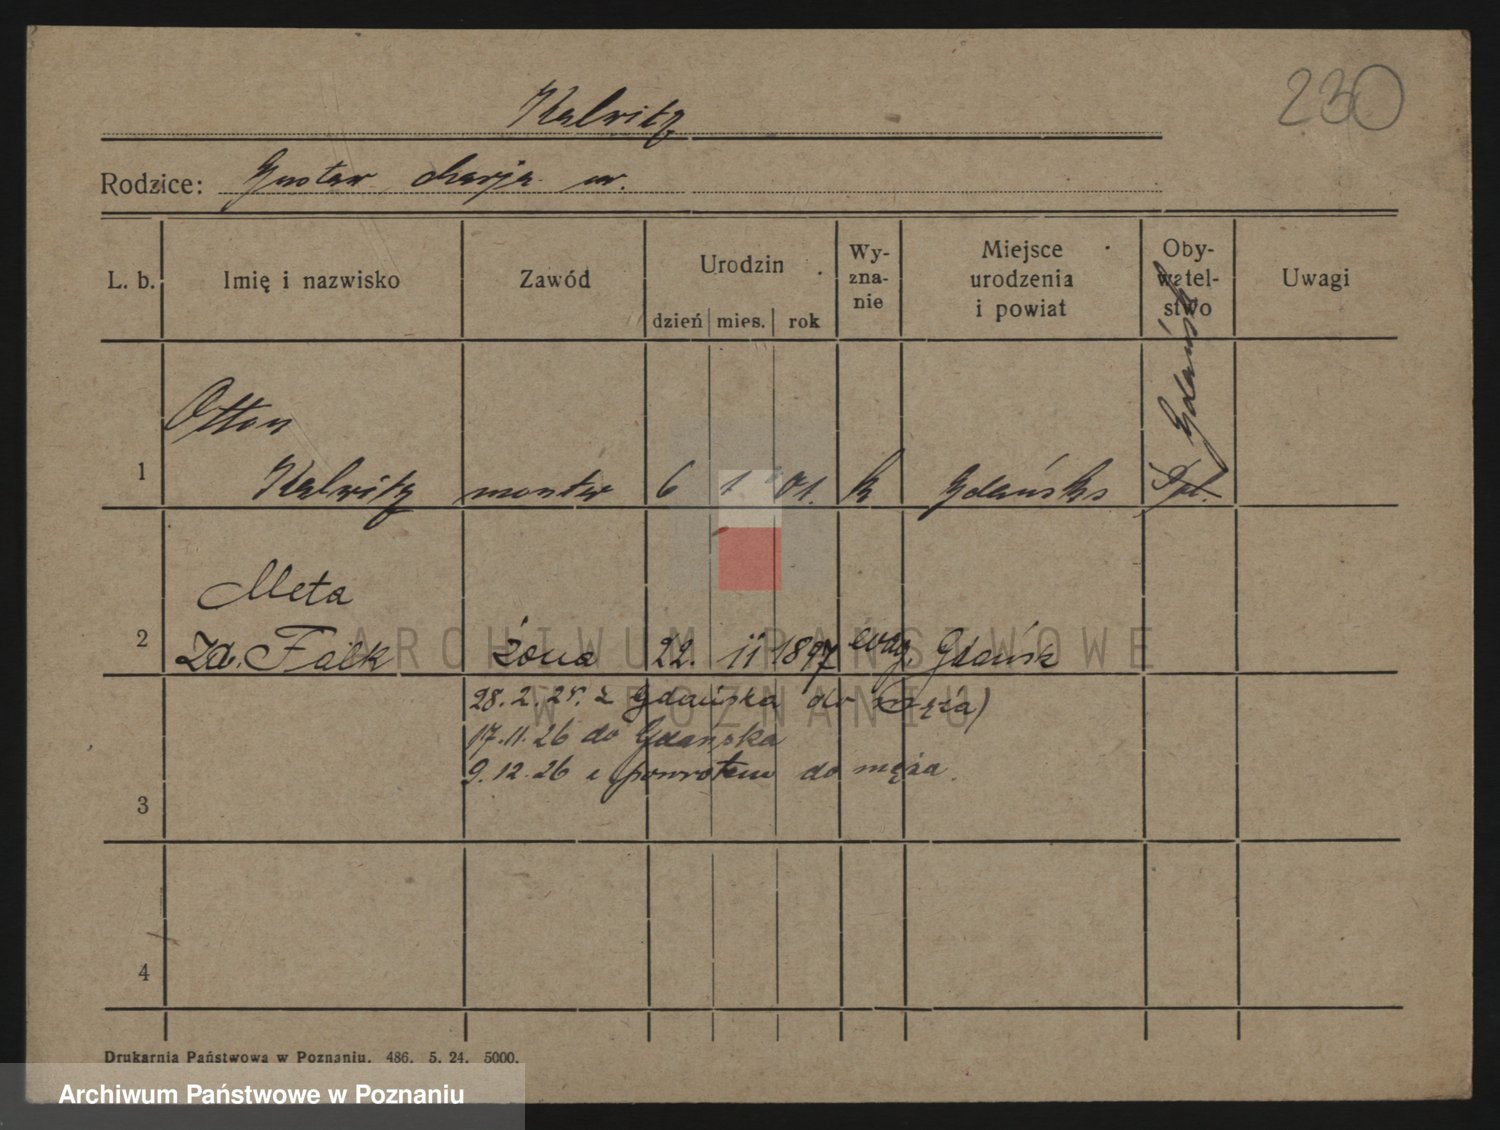 230
Kalwitz
Rodzice: Gustaw Marja ur.
L. b. Imię i nazwisko Zawód Urodzin dzień mies. rok Wy-zna-nie Miejsce urodzenia i powiat Oby-watel-stwo Uwagi
Otton
1 Kalwitz monter 6 1 01. k Gdańsk
Gdańsk
Meta
2 Zd. Falk żona 22. 11 1897 ewag. Gdańsk
28. 2. 25. z Gdańska do męża)
17. 11. 26 do Gdańska
9. 12. 26 z powrotem do męża.
3
4
ARCHIWUM PAŃSTWOWE
W POZNANIU
Drukarnia Państwowa w Poznaniu. 486. 5. 24. 5000.
Archiwum Państwowe w Poznaniu